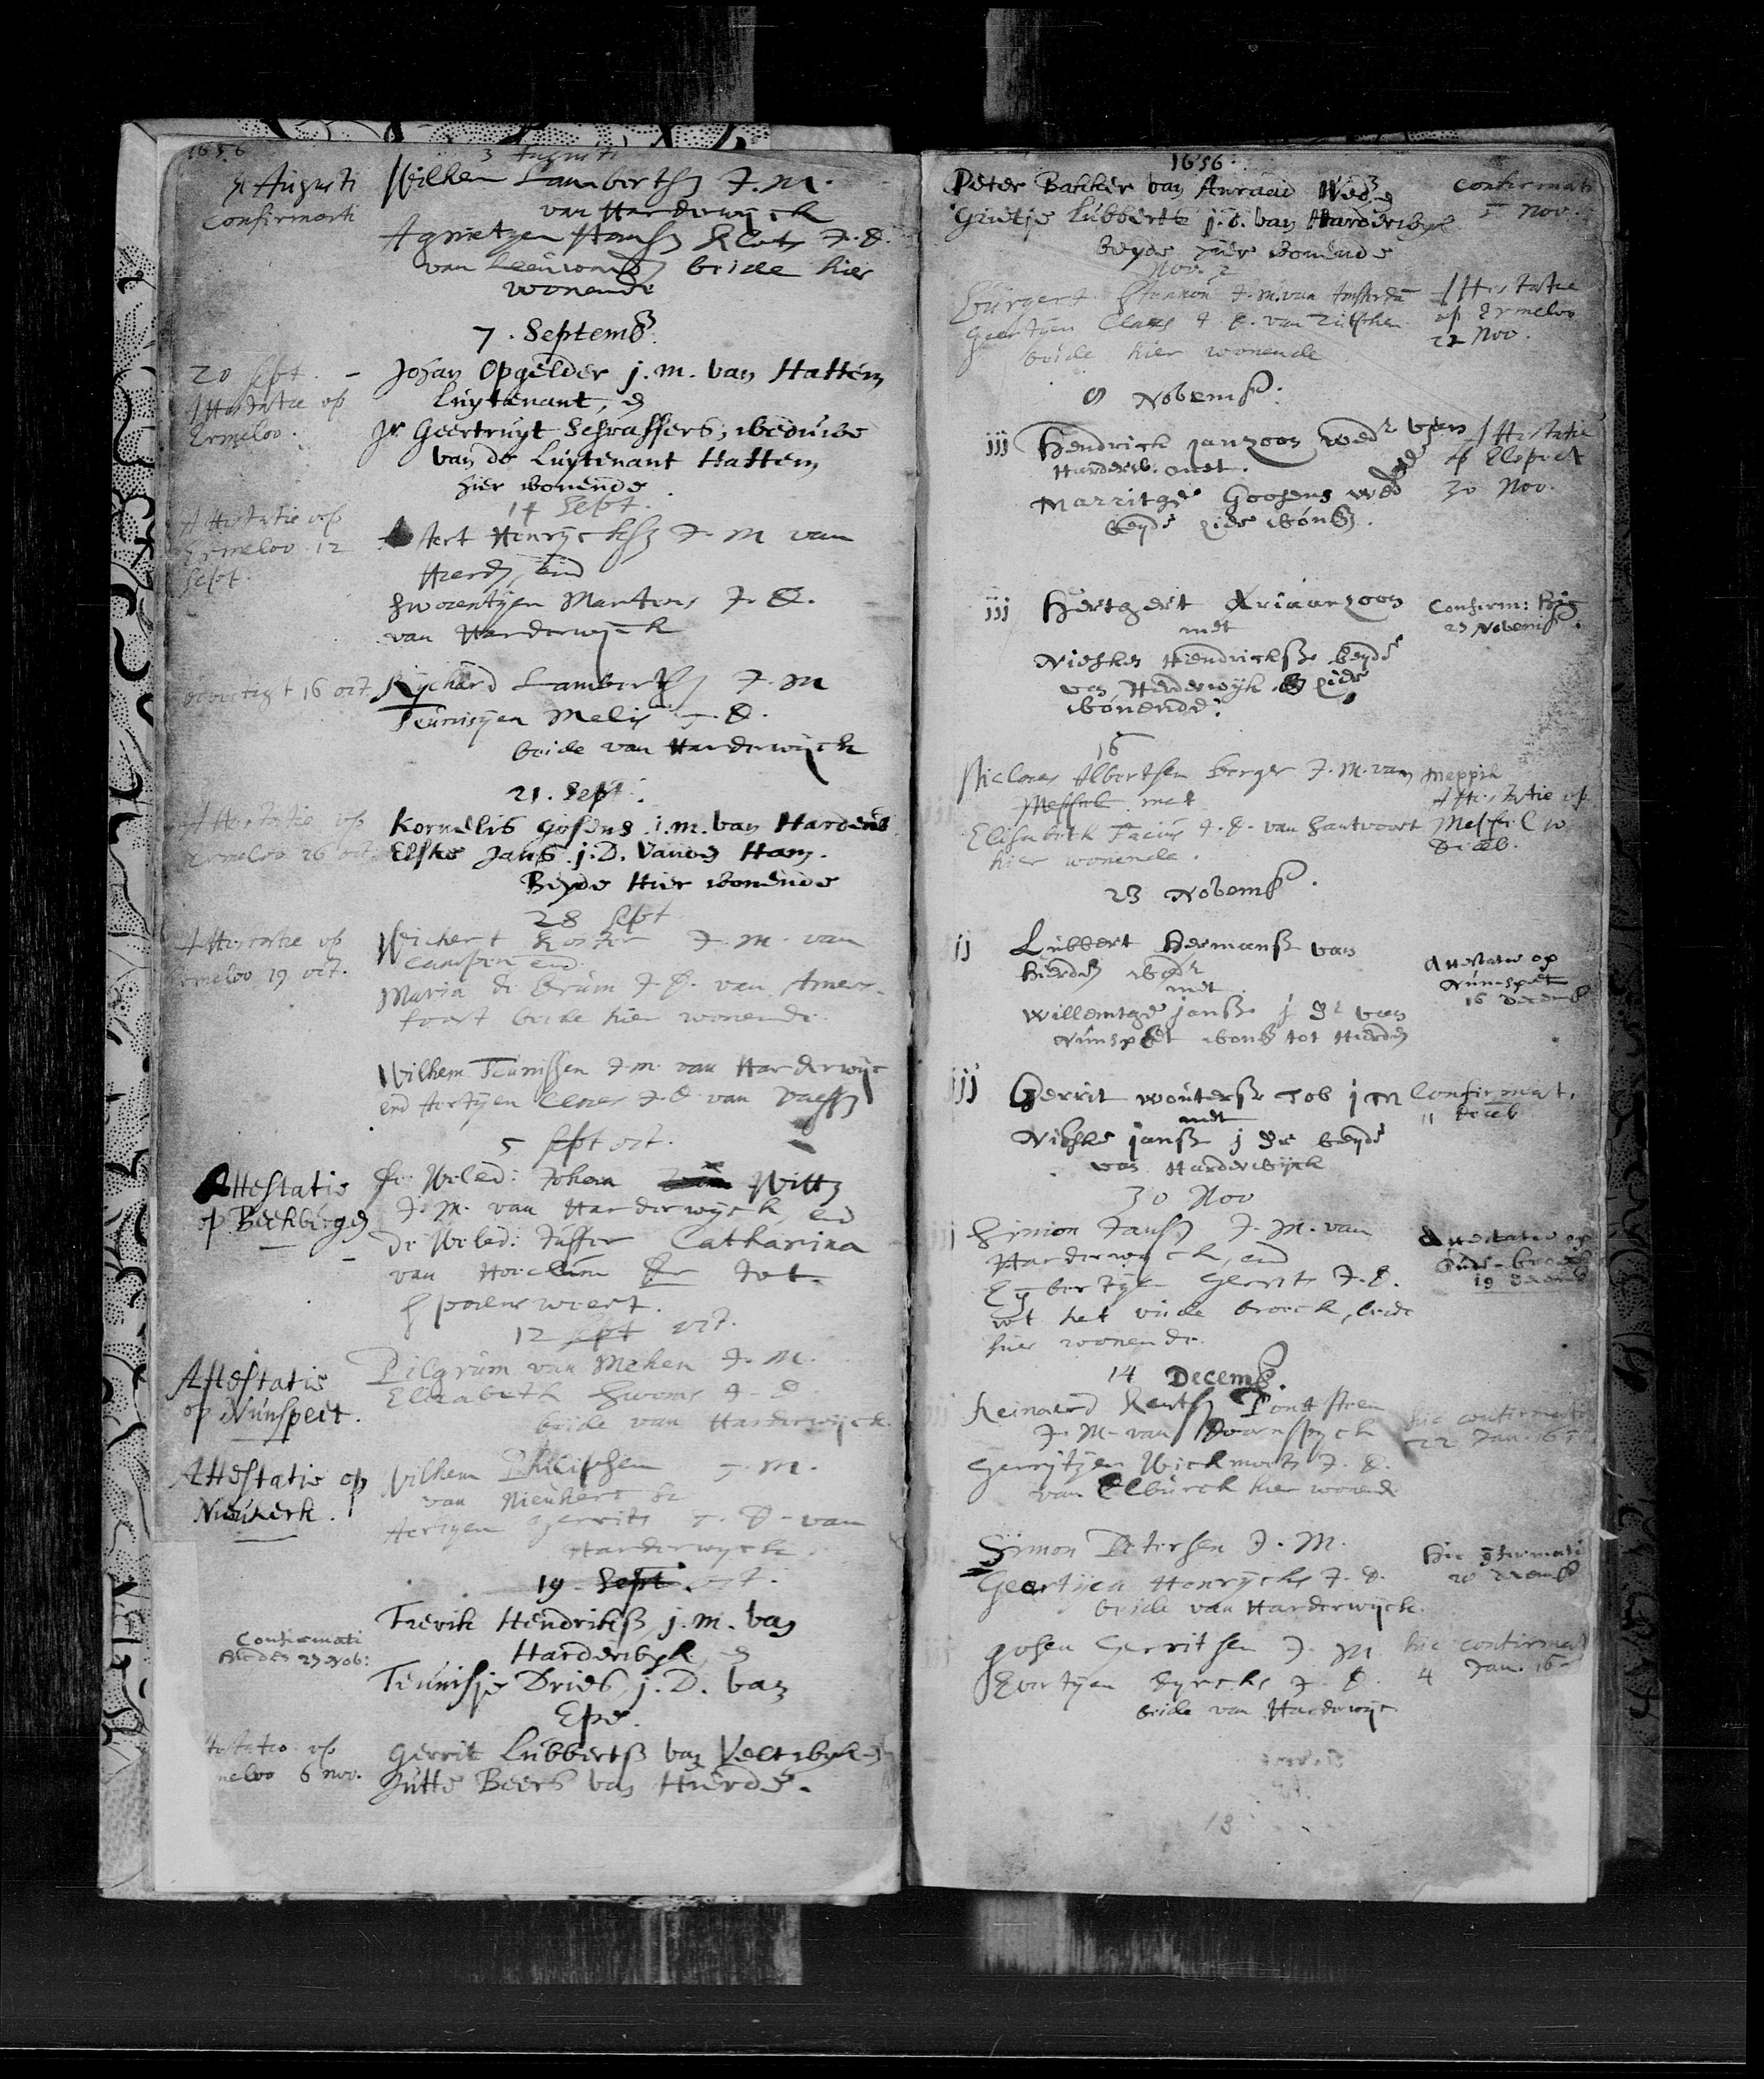 1656
3 Augusti
31 Augusti
Confirmati
Wilhem Lambertsz J. M.
van Harderwijck
Agnietgen Hansz Klots J. D.
van Leeuward beide hier
wonende
7. Septemb.
20 sept.
Attestatie op
Ermeloo.
Johan Opgelder j. m. van Hattem
Luytenant, en
Jr Geertruyt Schrassers, weduwe
van de Luytenant Hattem
hier wonende
14 Sept.
Attestatie op
Ermeloo 12
Sept.
Aert Henrijcksz J. M van
Hierd, end
Swerentyen Martens J. D.
van Harderwijck
16 oct.
Rijchard Lambertsz J. M
Teunisyen Melis J. D.
beide van Harderwijck
21. Sept.
Attestatie op
Ermeloo 26 oct.
Kornelis Gosens j. m. van Harderw.
Elske Jans j. D. van Ham.
Beyde Hier wonende
28 sept
Attestatie op
Ermeloo 19 oct.
Wichert Koster J. M. van
Campen end
Maria de Bruin J. D. van Amers-
foort beide hier wonende.
Wilhem Teunissen J. m. van Harderwijc
end Hertyen Claes J. D. van Vaess
5 sept oct.
Attestatie
op Beekbergen
De Weled: Johan Witt
J. M. van Harderwijck, end
De Weled: Juffer Catharina
van Hoeclum tot
Spaensweert.
12 sept oct.
Attestatie
op Nunspeet.
Pilgrum van Meken J. M.
Elizabeth Swoms J. D
beide van Harderwijck.
Attestatie op
Nieukerk.
Wilhem Philipsen J. M.
van Nieukerk &
Aertyen Gerrits J. D. van
Harderwyck
19. Sept. oct.
Confirmati
27 Nob:
Frerik Hendriksz j. m. van
Harderwyk, en
Teunisje Dries j. D. van
Epe.
6 nov.
Gerrit Lubbertsz van Veltwyk en
Jutte Beers van Hierde.
1656.
Peter Bakker van Anraad Wed. en
Grietje Lubberts j. d. van Harderwyk
beyde hier wonende
Confirmati
Nov.
Nov. 2
Burgert J. M. van Amsterda
Geertjen Claes J. D. van Zutphen
beide hier wonende
Attestatie
op Ermeloo
22 Nov.
9 Novemb:
iij Hendrick Janzoon wedr van
Harderw. met.
Marritge Goosens wed
beyde hier wonen.
Attestatie
op Elspeet
30 Nov.
iij Hertgert Adriaanzoon
met
Nieske Hendricksz beyde
van Harderwyk hier
wonende.
Confirm: hic
27 Novemb.
16
Niclaes Albertsen Berger J. M. van Meppil
Meppil met
Elisabeth J. D. van Santvoort
hier wonende.
Attestatie op
Meppil 10
Dceb.
23 Novemb.
ij Lubbert Hermansz van
Hierden wedr
met
Willemtge Jansz j dr van
Nunspeet won tot Hierden
Attestatie op
Nunspeet
16 Decemb
iij Gerrit Woutersz Tob j m
met
Nieske Jansz j dr beyde
van Harderwyck
Confirmat.
11 Dceb
30 Nov
Simon Jansz J. M. van
Harderwyck, end
Eybertyen Gerrits J. D.
wt het oude broeck, beide
hier wonende.
Attestatie op
Oude-broeck
19 Decemb
14 Decemb.
Reinaerd Rentsz Pontsteen
J. M. van Doornspyck
Gerrijtgen Wichmoets J. D.
van Elburck hier wonend
hic confirmati
22 Jan. 165
Simon Petersen J. M.
Geertyen Henrijcks J. D.
beide van Harderwyck.
hic
20 Decemb
Gosen Gerritsen J. M
Evertyen Dyrcks J. D.
beide van Harderwyc
hic confirmat
4 Jan. 16